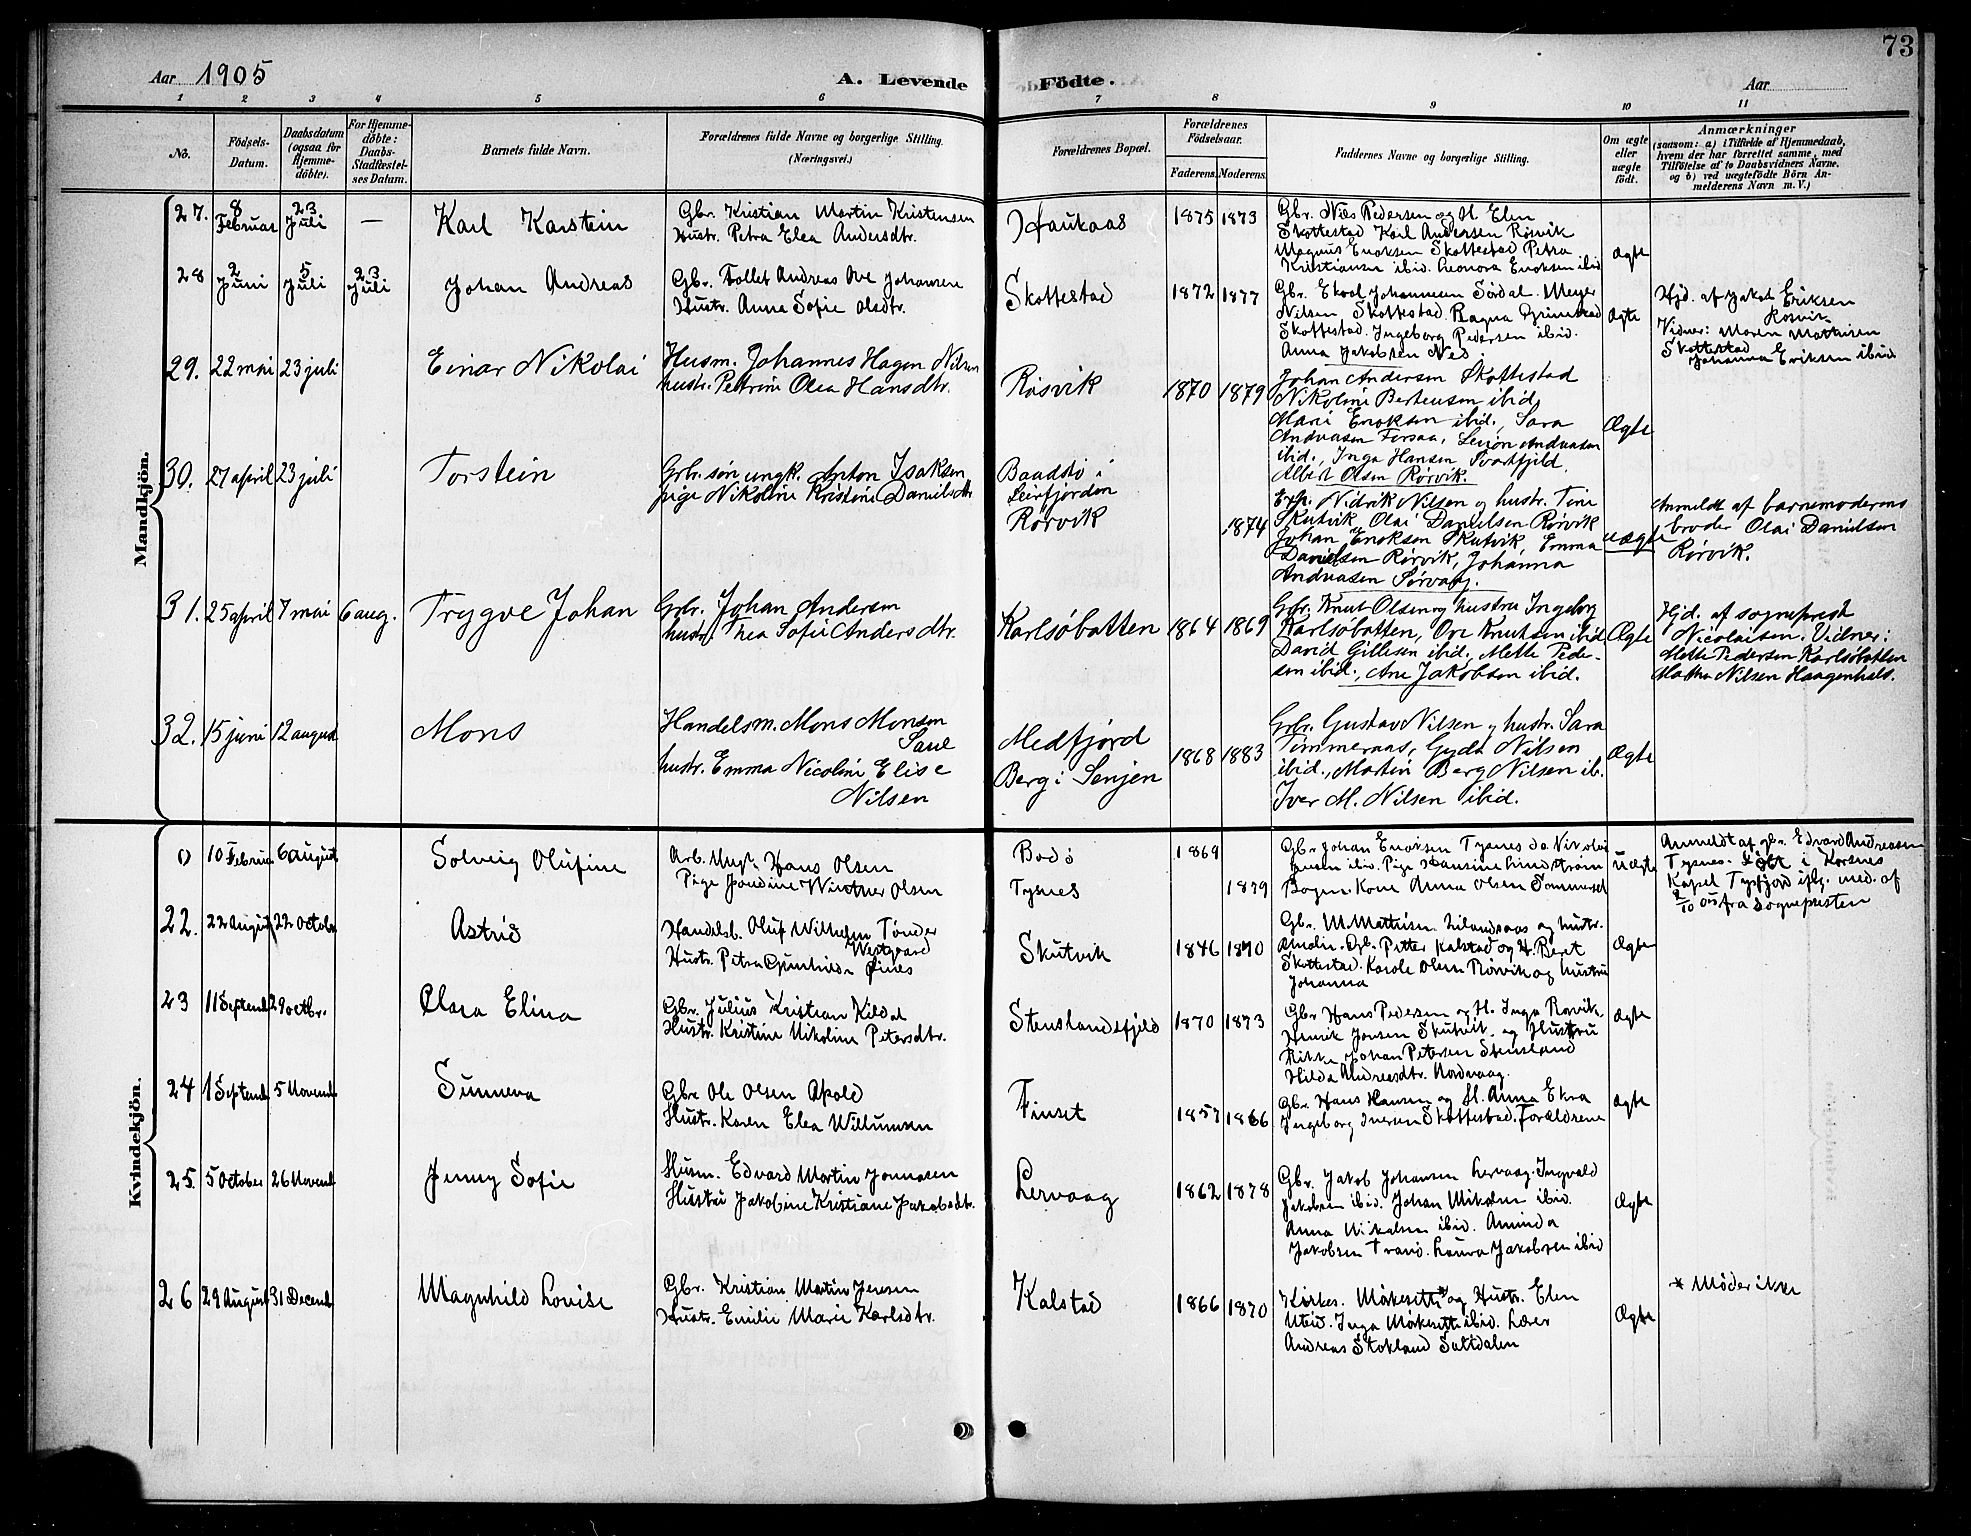 73
Aar 1905
A. Levende Födte.
Aar
1 2 3 4 5 6 7 8 9 10 11
No.
Födsels-Datum.
Daabsdatum (ogsaa for Hjemme-döbte).
For Hjemme-döbte: Daabs-Stadfæstel-ses Datum.
Barnets fulde Navn.
Forældrenes fulde Navne og borgerlige Stilling. (Næringsvei.)
Forældrenes Bopæl.
Forældrenes Födselsaar.
Faderens. Moderens.
Faddernes Navne og borgerlige Stilling.
Om ægte eller uægte födt.
Anmærkninger
(saasom: a) i Tilfælde af Hjemmedaab,
hvem der har forrettet samme, med
Tilföielse af to Daabsvidners Navne.
og b) ved uægtefödte Börn An-
melderens Navn m. V.)
Mandkjön.
27. 8 Februar 23 Juli — Karl Karstein
Gbr. Kristian Martin Kristensen
Hustr. Petra Elea Andersdtr.
Haukaas 1875 1873
Gbr. Nils Pedersen og H. Elen
Skottestad Karl Andersen Rösvik
Magnus Enoksen Skottestad Petra
Kristiansen ibid. Leonora Enoksen ibid
Ægte
28 2 Juni 5 Juli 23 Juli Johan Andreas
Gbr. Tollef Andreas Ove Johansen
Hustr. Anna Sofie Olsdtr.
Skottestad 1872 1877
Gbr. Johannesen Sördal. Meyer
Nilsen Skottestad. Ragna
Skottestad. Ingeborg Pedersen ibid.
Anna Jakobsen Nes.
Ægte
Hjd. af Jakob Eriksen
Rösvik
Vidner: Maren Mathisen
Skottestad
Johanna Eriksen ibid
29. 22 mai 23 juli Einar Nikolai
Husm. Johannes Hagen Nilsen
hustr. Petrine Olea Hansdtr.
Rösvik 1870 1879
Johan Andersen Skottestad
Nikoline Bertensen ibid.
Marie Enoksen ibid., Sara
Andreasen Forsaa, Andreasen
ibid., Inga Hansen Svartfjeld,
Albert Olsen Rörvik.
Ægte
30. 27 april 23 juli Torstein
Gbr. sön ungk. Anton Isaksen
pige Nikoline Kristine Danielsdtr
i
Leirfjorden
Rörvik 1874
Nidrik Nilsen og hustr. Tine
Skutvik, Olai Danielsen Rörvik
Johan Enoksen Skutvik, Emma
Danielsen Rörvik, Johanna
Andreasen Sörvaag.
uægte
Anmeldt af barnemoderens
broder Olai Danielsen
Rörvik.
31. 25 april 7 mai 6 aug. Trygve Johan
Gbr. Johan Andersen
hustr. Thea Sofie Andersdtr.
Karlsöbotten 1864 1869
Gbr. Knut Olsen og hustru Ingeborg
Karlsöbotten, Ove Knutsen ibid
David Gillesen ibid., Mette Peder-
sen ibid., Ane Jakobsen ibid.
Ægte
Hjd. af sogneprest
Nicolaisen. Vidner:
Mette Pedersen Karlsöbotten
Martha Nilsen Haagenhals.
32. 15 juni 12 august Mons
Handelsm. Mons Monsen
hustr. Emma Nicoline Elise
Nilsen
Medfjord
Berg i Senjen 1868 1883
Gbr. Gustav Nilsen og hustr. Sara
Timmeraas, Gyda Nilsen
ibid., Martin Berg Nilsen ib.
Iver M. Nilsen ibid.
Ægte
Kvindekjön.
0 10 Februar 6 august Solveig Olufine
Arb. Ungk. Hans Olsen
Pige Jordine Olsen
Bodö 1869
Tysnes 1879
Gbr. Johan Enoksen Tysnes do Nikolai
ibid. Pige Hansine Lindström
Bogen. Kone Anna Olsen Sommerset
Uægte
Anmeldt af gbr. Edvard Andreassen
Tysnes. Döbt i Korsnes
Kapel Tysfjord iflg. med. af
2/10 05 fra Sognepresten
22. 22 August 22 October Astrid
Handelsb. Oluf Wilhelm Tönder
Westgaard
Hustr. Petra Gunhilda
Skutvik 1846 1870
Gbr. M. Mathisen og hustr.
Gbr. Petter Kalstad og H. Beret
Skottestad. Karole Olsen Rörvik og hustru
Johanna
Ægte
23 11 Septemb 29 octbr. Clara Elina
Gbr. Julius Kristian Kildal
Hustr. Kristine Nikoline Petersdtr.
Stenslandsfjeld 1870 1873
Gbr Hans Pedersen og H. Inga Rörvik.
Henrik Jensen Skutvik og Hustru
Rikke Johan Petersen Stensland
Hilda Andreasdtr. Nordvaag.
Ægte
24 1 Septemb 5 Novemb Sunneva
Gbr. Ole Olsen Apold
Hustr. Karen Elea Willumsen
Finset 1857 1866
Gbr. Hans Hansen og H. Anna Ekra
Ingeborg Iversen Skottestad. Forældrene
Ægte
25. 5 October 26 Novemb Jenny Sofie
Husm. Edvard Martin Jonnasen
Hustru Jakobine Kristiane Jakobsdtr.
Lervaag 1862 1878
Gbr. Jakob Johansen Lervaag. Ingvald
Jakobsen ibid. Johan Nikolsen ibid.
Anna Nikalsen ibid. Aminda
Jakobsen Tranö. Laura Jakobsen ibid
Ægte
26 29 August 31 Decemb Magnhild Lovise
Gbr. Kristian Martin Jensen
Hustr. Emilie Marie Karlsdtr.
Kalstad 1866 1870
Kirkes. Mörkesette* og Hustr. Elen
Uteid. Inga Mörkesette ibid. Lærer
Andreas Stokland Saltdalen
Ægte
* Möder ikke